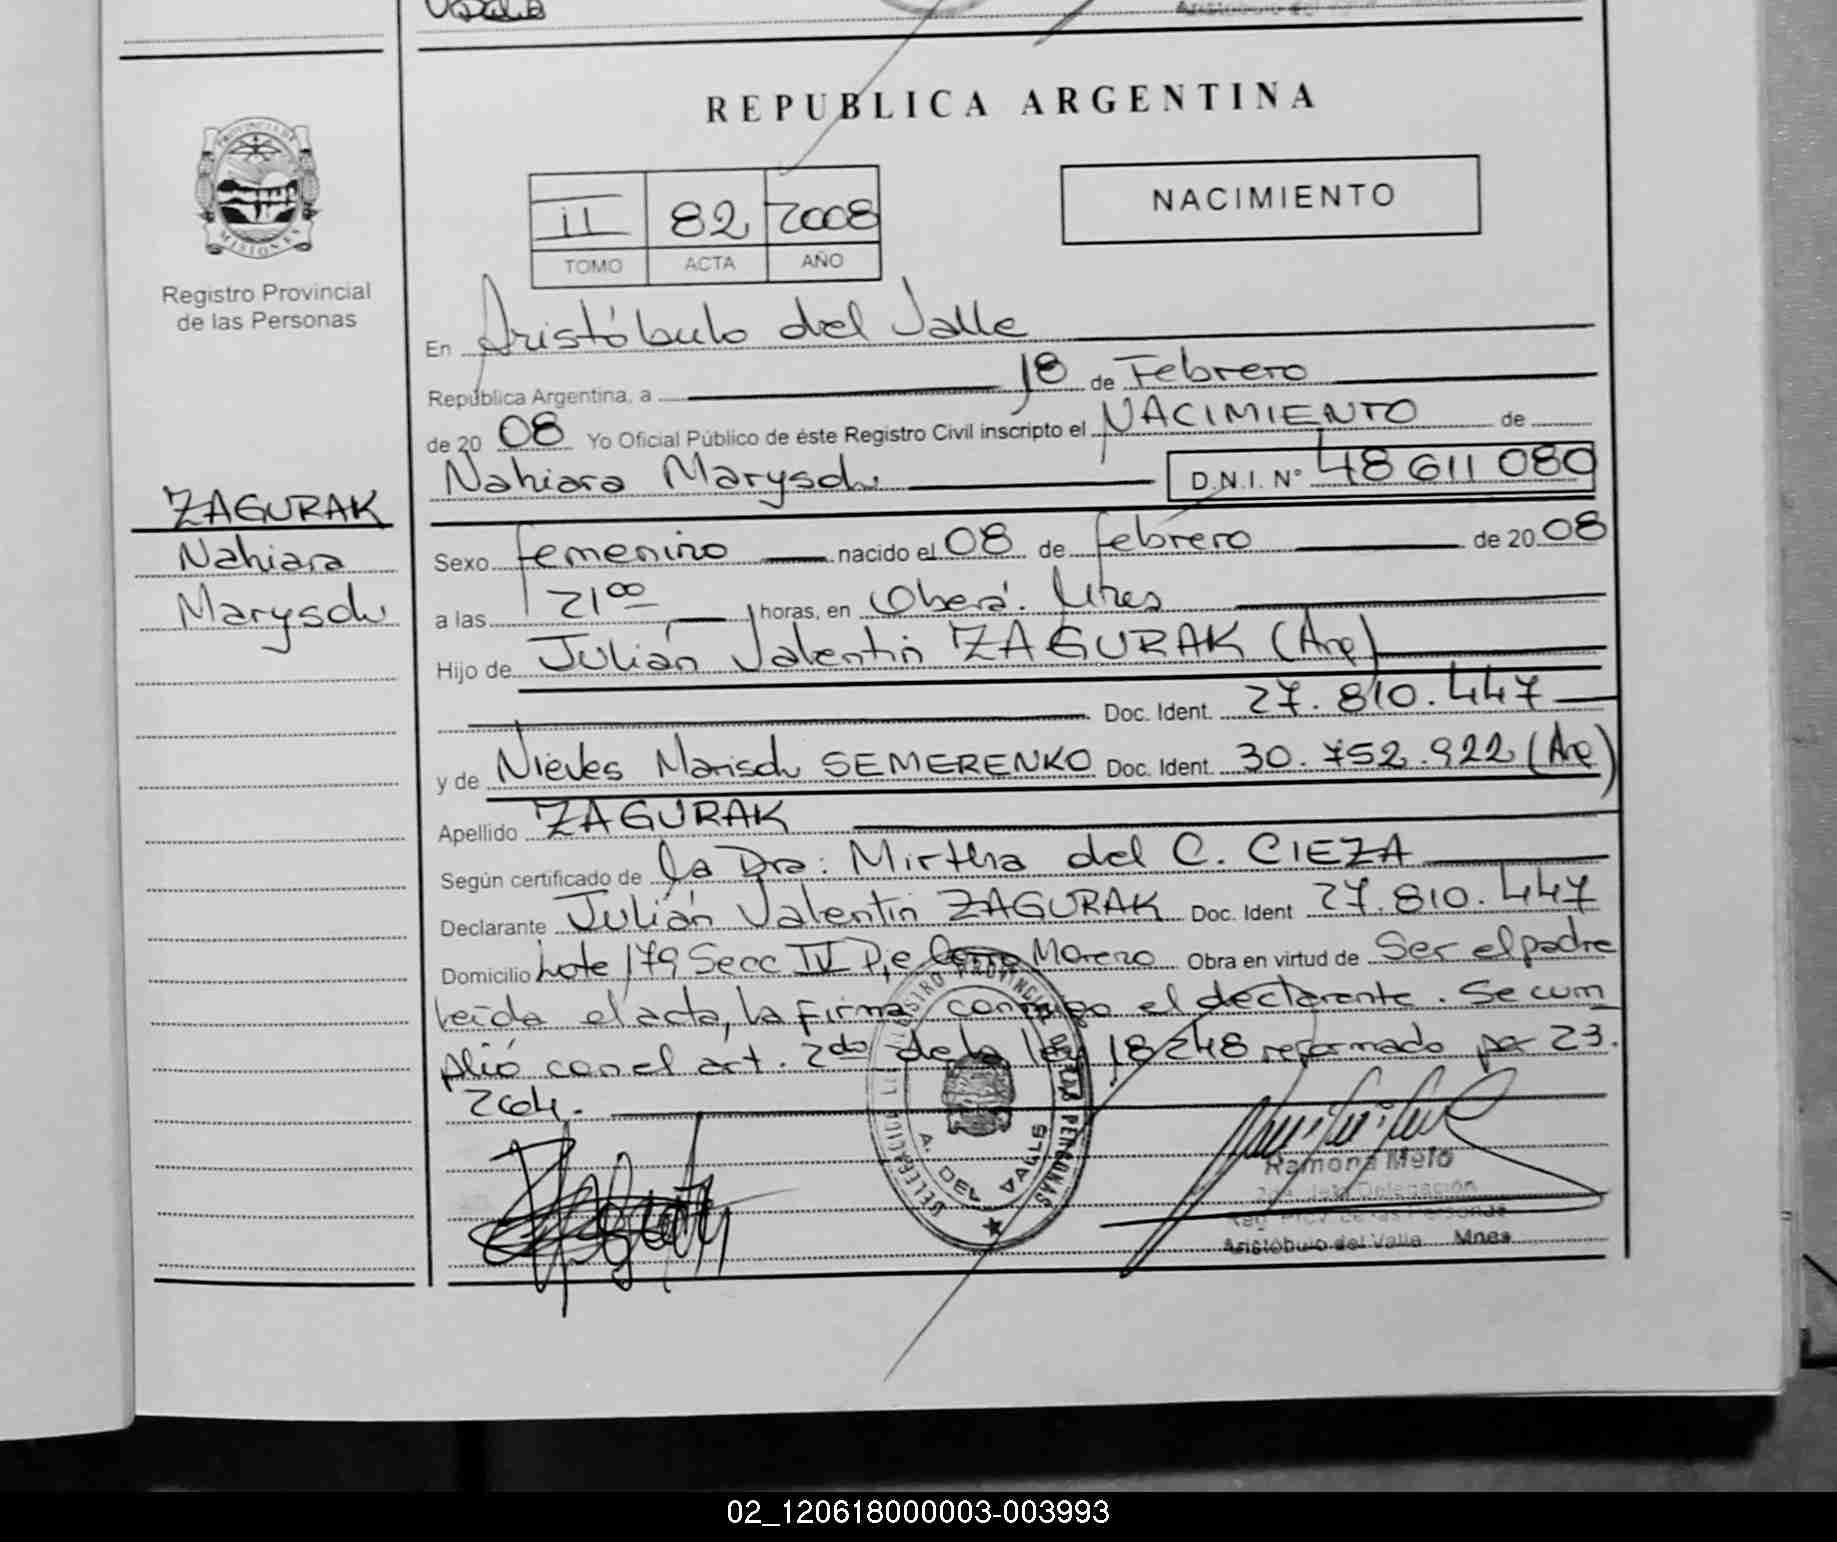 REPUBLICA ARGENTINA
PROVINCIA DE MISIONES
Registro Provincial
de las Personas
II 82 2008
TOMO ACTA AÑO
NACIMIENTO
En Aristóbulo del Valle
República Argentina, a 18 de Febrero
de 20 08 Yo Oficial Público de éste Registro Civil inscripto el NACIMIENTO de
Nahiara Marysol D.N.I. N° 48 611 080
ZAGURAK
Nahiara
Marysol
Sexo femenino nacido el 08 de febrero de 20 08
a las 21 00 horas, en Oberá. Mnes
Hijo de Julián Valentin ZAGURAK (Arg)
Doc. Ident. 27.810.447
y de Nieves Marisol SEMERENKO Doc. Ident. 30.752.922 (Arg)
Apellido ZAGURAK
Según certificado de la Dra: Mirtha del C. CIEZA
Declarante Julián Valentin ZAGURAK Doc. Ident 27.810.447
Domicilio Lote 179 Secc IV Pje Cerro Moreno Obra en virtud de Ser el padre
leida el acta, la firma conmigo el declarante. Se cum
plió con el art. 2do de la ley 18248 reformado por 23.
264.
A. DEL VALLE
Ramona Melo
2da Jefa Delegación
Reg. Prov. de las Personas
Aristóbulo del Valle Mnes
02_120618000003-003993